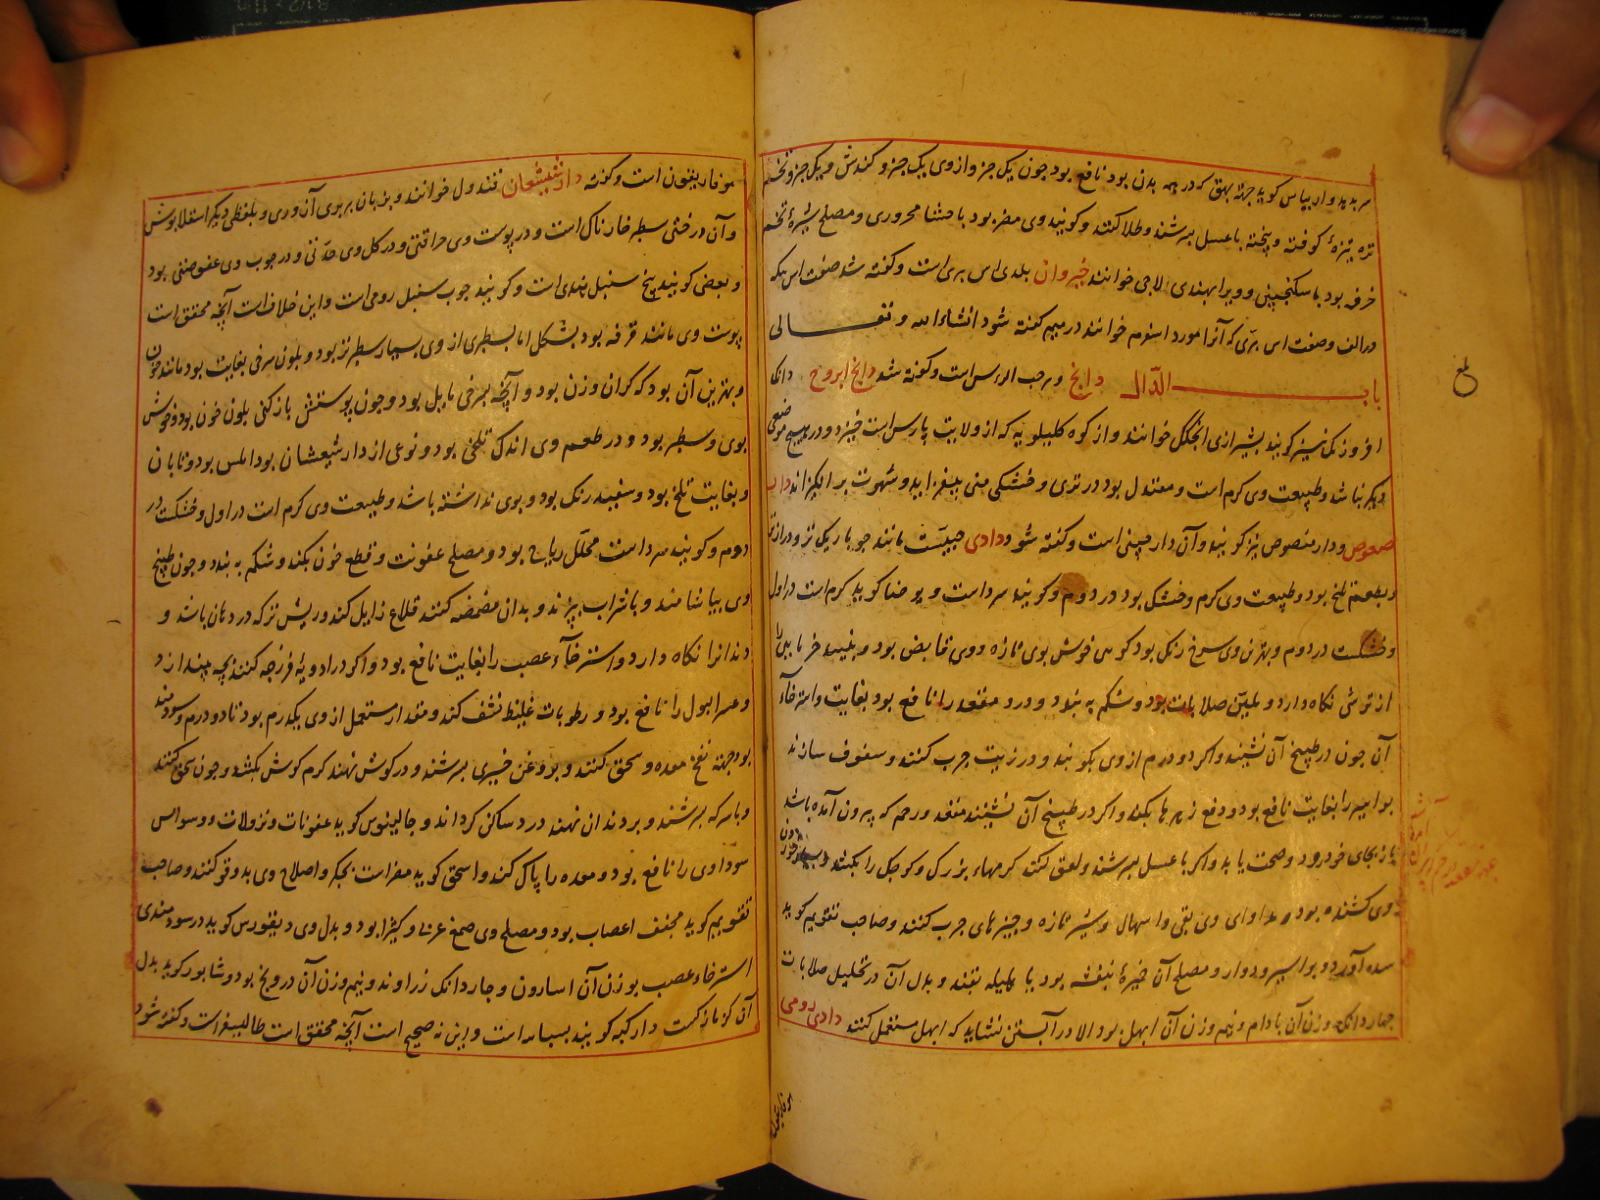 سر بدید واریباس کوید جهة بهق که در همه بدن بود نافع بود چون یک جزو ازوی یک جزو کندش و یک جزو تخم
تره تیزهٔ کوفته و پیخته با عسل بسرشند و طلا کنند و کویند وی مضر بود با حشا محروری و مصلح شیرهٔ تخم
خرفه بود با سکنجبین و ویرا بهندی لاجی خوانند خیروان بلدی اس بری است و کفته شد صفت اس یکه
در الف و صفت اس بری که آنرا مورد اسفرم خوانند در میم کفته شود انشاء الله و تعالی
باب الدال دابخ و برحب الراس است و کفته شد دابخ ابروج دانکا
افروزکمانیز کویند بشیرازی انجکک خوانند و از کوه کلیلویه که از ولایت پارس است خیزد و در هیچ موضعی
دیکر نباشد و طبیعت وی کرم است و معتدل بود در تری و خشکی منی بیفزاید و شهوت برانکیزاند داب
صعوص و دار منصوص نیز کویند و آن دار چینی است و کفته شود دادی حبیست مانند جو باریک تر و درازتر
و بطعم تلخ بود و طبیعت وی کرم و خشک بود در دوم و کویند سرد است و یوحنا کوید کرم است در اول
و خشکست در دوم و بهترین وی سرخ رنک بود کوهی خوش بوی تازه و وی قابض بود و نبید خرمایین را
از ترشی نکاه دارد و ملین صلابات بود و شکم به بندد و درد مقعد را نافع بود بغایت و استرخآء
آن چون در طبیخ آن نشیند و اکر دو درم ازوی بکوبند و در زیت چرب کنند و سفوف سازند
بواسیر را بغایت نافع بود و دفع زهرها بکند و اکر در طبیخ آن نشینند مقعد و رحم که بیرون آمده باشد
باز بجای خود رود و صحت یابد و اکر با عسل بسرشند و لعق کنند کرمهاء بزرک و کوچک را بکشد و بسیار خوردن
وی کشنده بود و مداوای وی بقی و اسهال و شیر تازه و چیزهای چرب کنند و صاحب تقویم کوید
سده آورد و بواسیر و دوار و مصلح آن خمیرهٔ بنفشه بود یا هلیله بقند و بدل آن در تحلیل صلابات
چهار دانک وزن آن بادام و نیم وزن آن ابهل بود الا در آبستن نشاید که ابهل مستعمل کنند دادی رومی
هوفاریقون
هوفاریقون است و کفته دارشیشعان قندول خوانند و بزبان بربری آزوری و بلفظی دیکر اسقلابوش
و آن درختی سطبر خارناک است و در پوست وی حرافتی و در کل وی حدتی و در چوب وی عفوصتی بود
و بعضی کویند بیخ سنبل هندی است و کویند چوب سنبل رومی است و این خلافست آنچه محقق است
پوست وی مانند قرفه بود بشکل اما بسطبری از وی بسیار سطبرتر بود و بلون سرخی بغایت بود مانند خون
و بهترین آن بود که کران وزن بود و آنچه بسرخی مایل بود و چون پوستش بازکنی بلون خون بود و خوش
بوی و سطبر بود و در طعم وی اندک تلخی بود و نوعی از دارشیعشان بود املس بود و تابان
و بغایت تلخ بود و سفید رنک بود و بوی نداشته باشد و طبیعت وی کرم است در اول و خشکست در
دوم و کویند سرد است محلل ریاح بود و مصلح عفونت و قطع خون بکند و شکم به بندد و چون طبیخ
وی بیاشامند و با شراب بپزند و بدان مضمضه کنند قلاع زایل کند و ریش تر که در دهان باشد و
دندانرا نکاه دارد و استرخآء عصب را بغایت نافع بود و اکر در ادویهٔ فرزجه کنند بچه بیندازد
و عسر البول را نافع بود و رطوبات غلیظ نشف کند و مقدار مستعمل از وی یکدرم بود تا دو درم و سودمند
بود جهة نفخ معده و سحق کنند و بروغن خیری بسرشند و در کوش نهند کرم کوش بکشد و چون سحق کنند
و با سرکه بسرشند و بر دندان نهند درد ساکن کرداند و جالینوس کوید عفونات و نزولات و وسواس
سوداوی را نافع بود و معده را پاک کند و اسحق کوید مضر است بجکر و اصلاح وی بدوقو کنند و صاحب
تقویم کوید مجفف اعصاب بود و مصلح وی صمغ عربی و کثیرا بود و بدل وی دیسقوریدس کوید در سودمندی
استرخاء عصب بوزن آن اسارون و چاردانک زراوند و نیم وزن آن درونج بود و شابور کوید بدل
آن کزمازکست دارکیه کویند بسباسه است و این نه صحیح است آنچه محقق است طالیسفر است و کفته شود